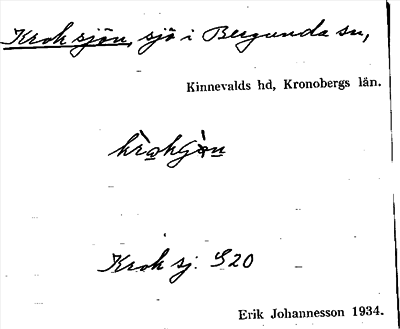 Krok sjön, sjö i Bergunda sn,
Kinnevalds hd, Kronobergs län.
Krok sj. S20
Erik Johannesson 1934.